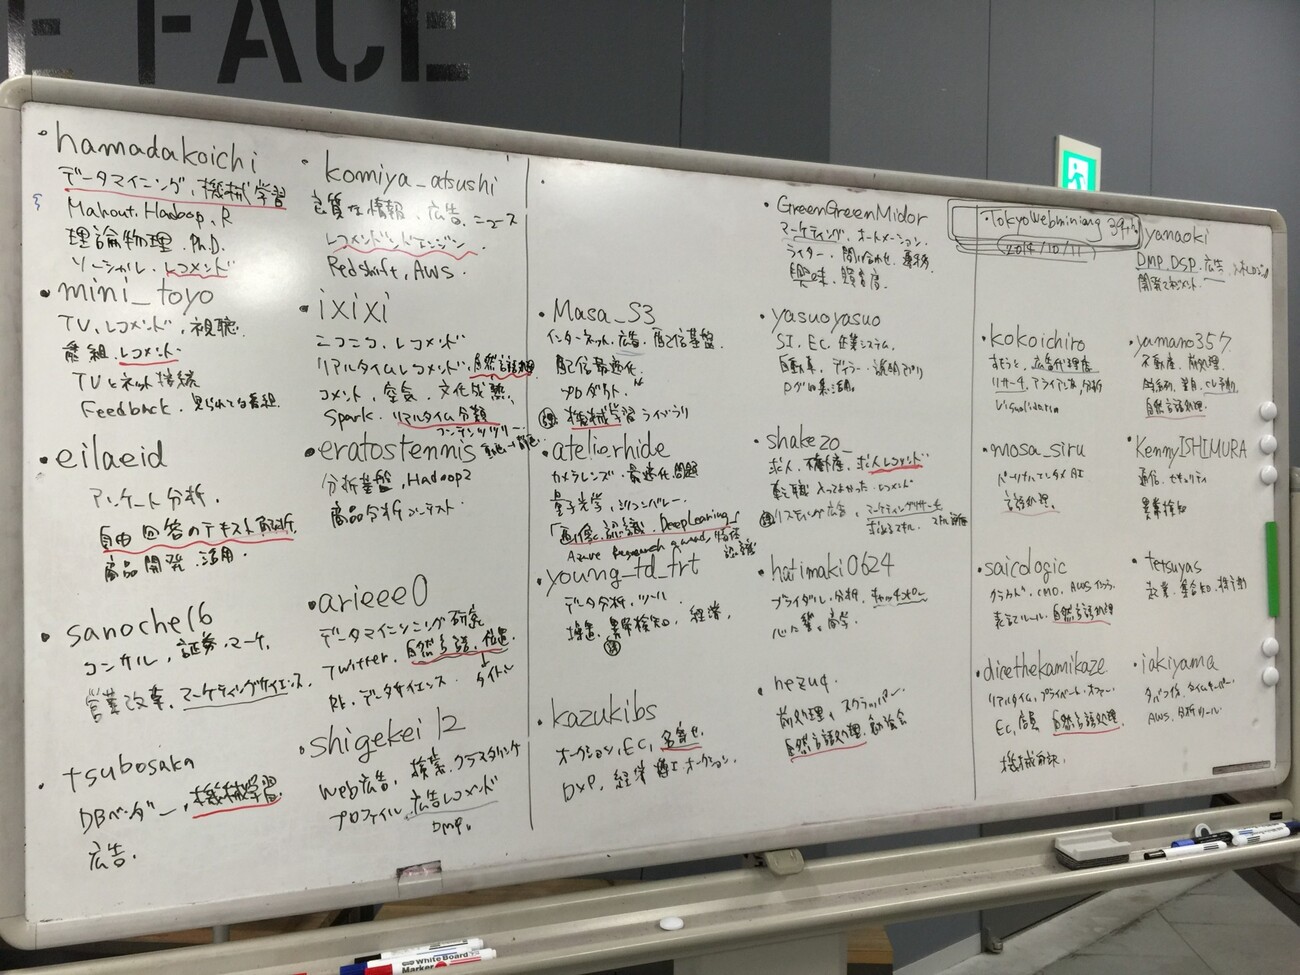 FACE
・hamadakoichi
データマイニング、機械学習
Mahout, Hadoop, R
理論物理、Ph.D.
ソーシャル、レコメンド
・mini_toyo
TV、レコメンド、視聴
番組、レコメンド
TVとネット接続
Feedback、見られてる番組
・eilaeid
アンケート分析、
自由回答のテキスト解析、
商品開発、活用
・sanoche16
コンサル、証券、マーケ、
営業改革、マーケティングサイエンス、
・tsubosaka
DBベンダー、機械学習
広告、
・komiya_atsushi
良質な情報、広告、ニュース
レコメンドエンジン
Redshift, AWS.
・ixixi
ニコニコ、レコメンド
リアルタイムレコメンド、自然言語処理
コメント、空気、文化成熟、
Spark、リアルタイム分類
コンテンツツリー
・eratostennis
分析基盤、Hadoop2
商品分析コンテスト
・arieee0
データマイニング研究
Twitter、自然言語、位置
R、データサイエンス、タイトル
・shigekei12
Web広告、検索、クラスタリング
プロファイル、広告レコメンド
DMP。
・Masa_S3
インターネット、広告、配信基盤
配信最適化
プロダクト
機械学習ライブラリ
・atelierhide
カメラレンズ、最適化問題
量子光学、シリコンバレー
「画像認識、DeepLearning」
Azure Research Award
・young_td_frt
データ分析、ツール
推進、異常検知、経済、
・kazukibs
オークション、EC、名寄せ、
DMP、オークション、
・GreenGreenMidor
マーケティング、オートメーション、
ライター、問い合わせ、
興味、
・yasuoyasuo
SI、EC、企業システム、
自動車、ディーラー、
ログ収集、活用。
・shakezo_
求人、不動産、求人レコメンド
転職、入ってよかった、レコメンド
リスティング広告、マーケティングリサーチ
求めるスキル、スキル
・hatimaki0624
ブライダル、分析、キャッチコピー
心に響く
・nezuq.
前処理、スクラッパー、
自然言語処理、勉強会
・TokyoWebmining 39th
2014/10/11
・yanaoki
DMP、DSP、広告
開発マネジメント、
・kokoichiro
広告代理店
リサーチ、アライアンス、分析
・yamano357
不動産、前処理、
自然言語処理、
・mosa_siru
パーソナルアシスタントAI
言語処理。
・KennyISHIMURA
通信、セキュリティ
異常検知
・saicologic
クラウド、CMO、AWS
表記ルール、自然言語処理
・tetsuyas
起業、集合知、
・direthekamikaze
リアルタイム、プライベート、オファー、
EC、店員、自然言語処理、
機械翻訳、
・iakiyama
タイムキーパー、
AWS、分析ツール、
White Board Marker